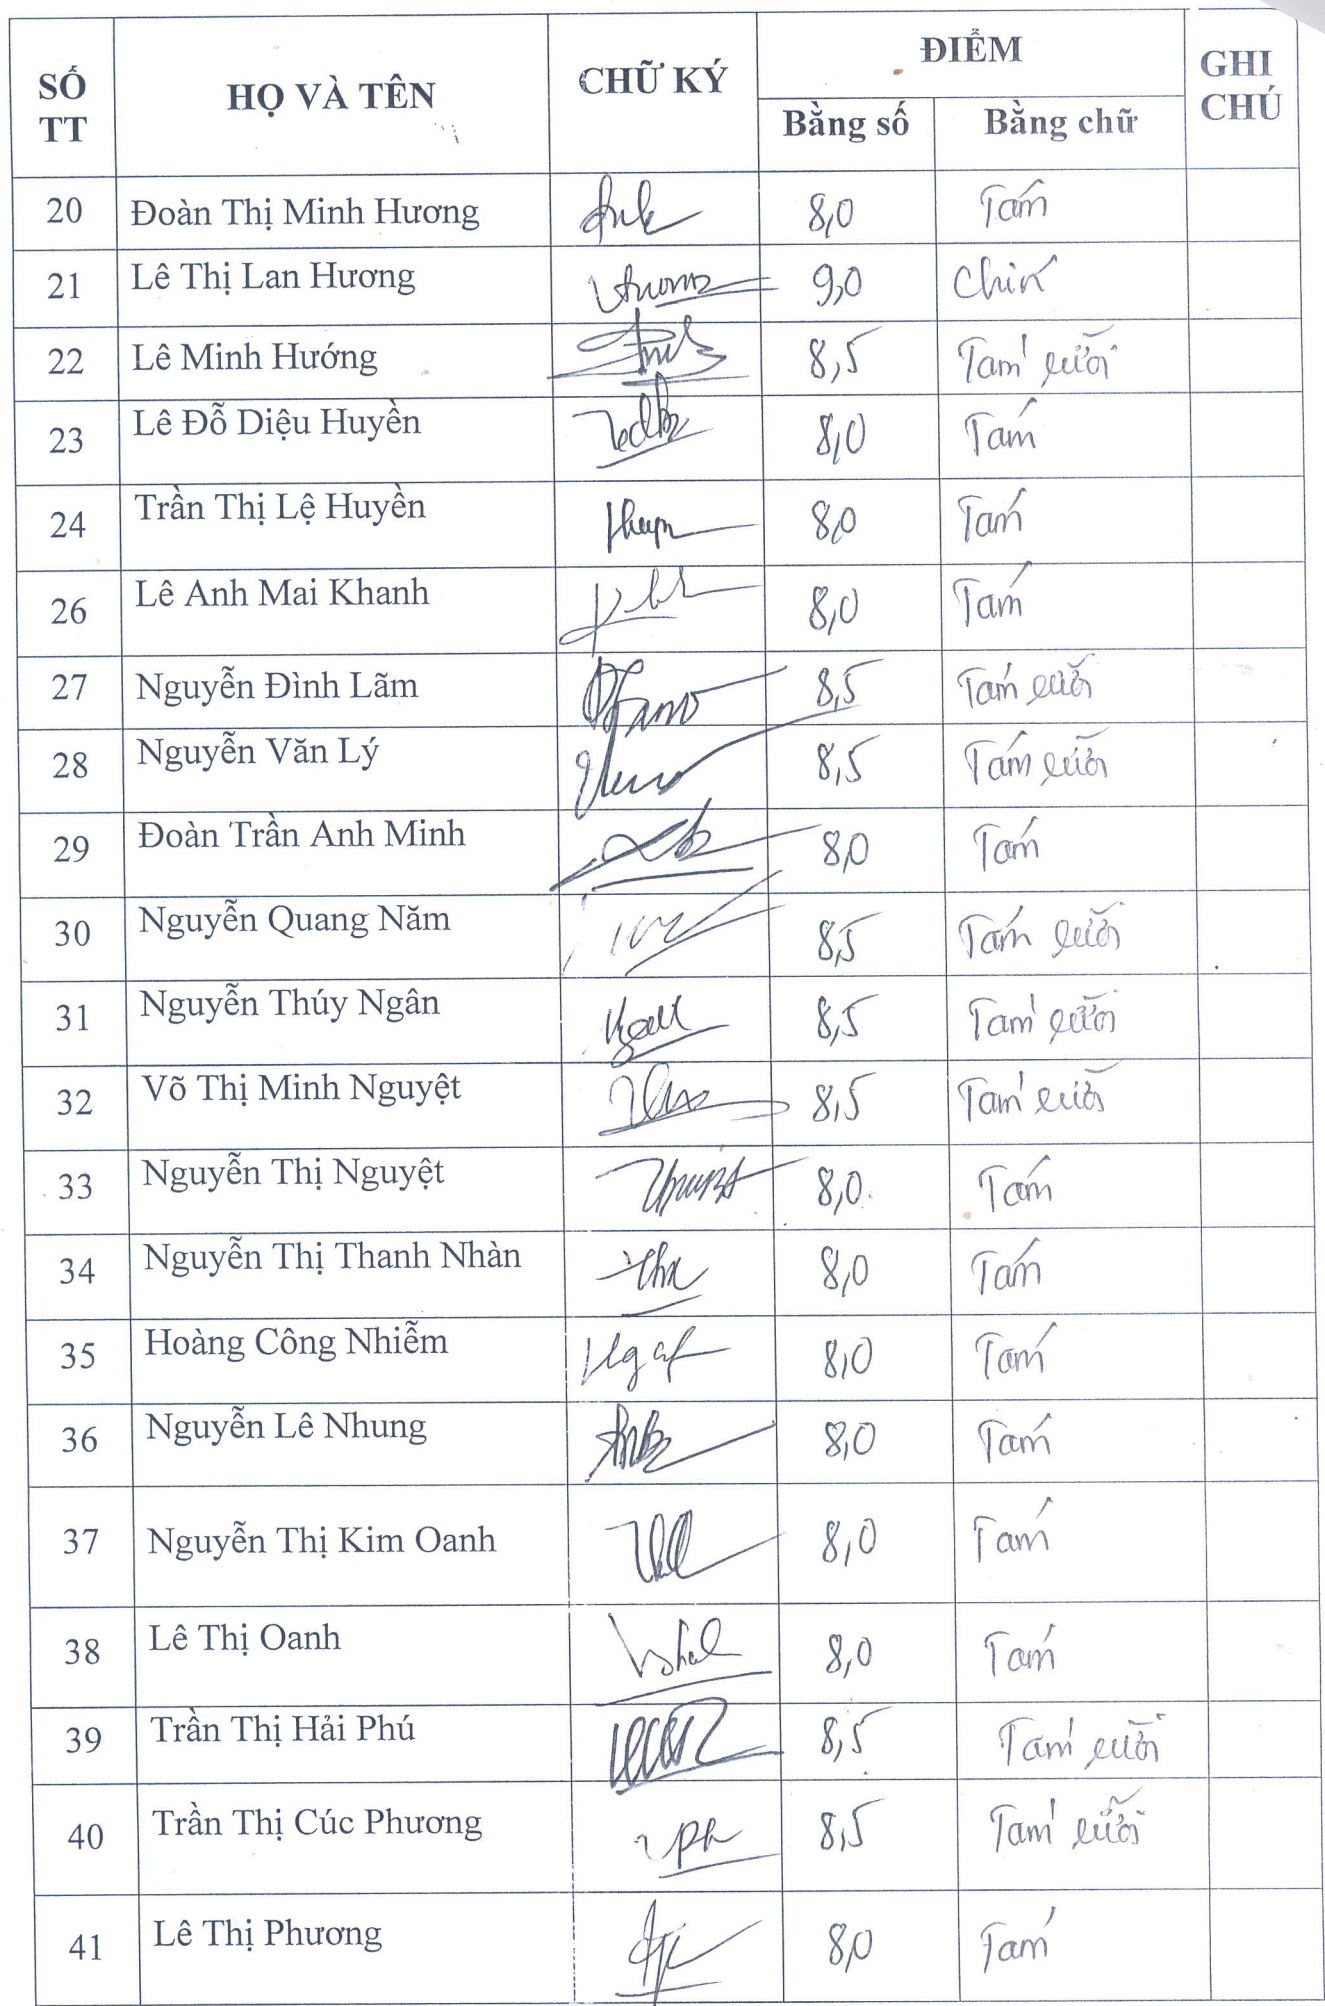 SỐ TT HỌ VÀ TÊN CHỮ KÝ ĐIỂM GHI CHÚ
Bằng số Bằng chữ
20 Đoàn Thị Minh Hương 8,0 Tám
21 Lê Thị Lan Hương 9,0 Chín
22 Lê Minh Hướng 8,5 Tám rưỡi
23 Lê Đỗ Diệu Huyền 8,0 Tám
24 Trần Thị Lệ Huyền 8,0 Tám
26 Lê Anh Mai Khanh 8,0 Tám
27 Nguyễn Đình Lãm 8,5 Tám rưỡi
28 Nguyễn Văn Lý 8,5 Tám rưỡi
29 Đoàn Trần Anh Minh 8,0 Tám
30 Nguyễn Quang Năm 8,5 Tám rưỡi
31 Nguyễn Thúy Ngân 8,5 Tám rưỡi
32 Võ Thị Minh Nguyệt 8,5 Tám rưỡi
33 Nguyễn Thị Nguyệt 8,0 Tám
34 Nguyễn Thị Thanh Nhàn 8,0 Tám
35 Hoàng Công Nhiễm 8,0 Tám
36 Nguyễn Lê Nhung 8,0 Tám
37 Nguyễn Thị Kim Oanh 8,0 Tám
38 Lê Thị Oanh 8,0 Tám
39 Trần Thị Hải Phú 8,5 Tám rưỡi
40 Trần Thị Cúc Phương 8,5 Tám rưỡi
41 Lê Thị Phương 8,0 Tám